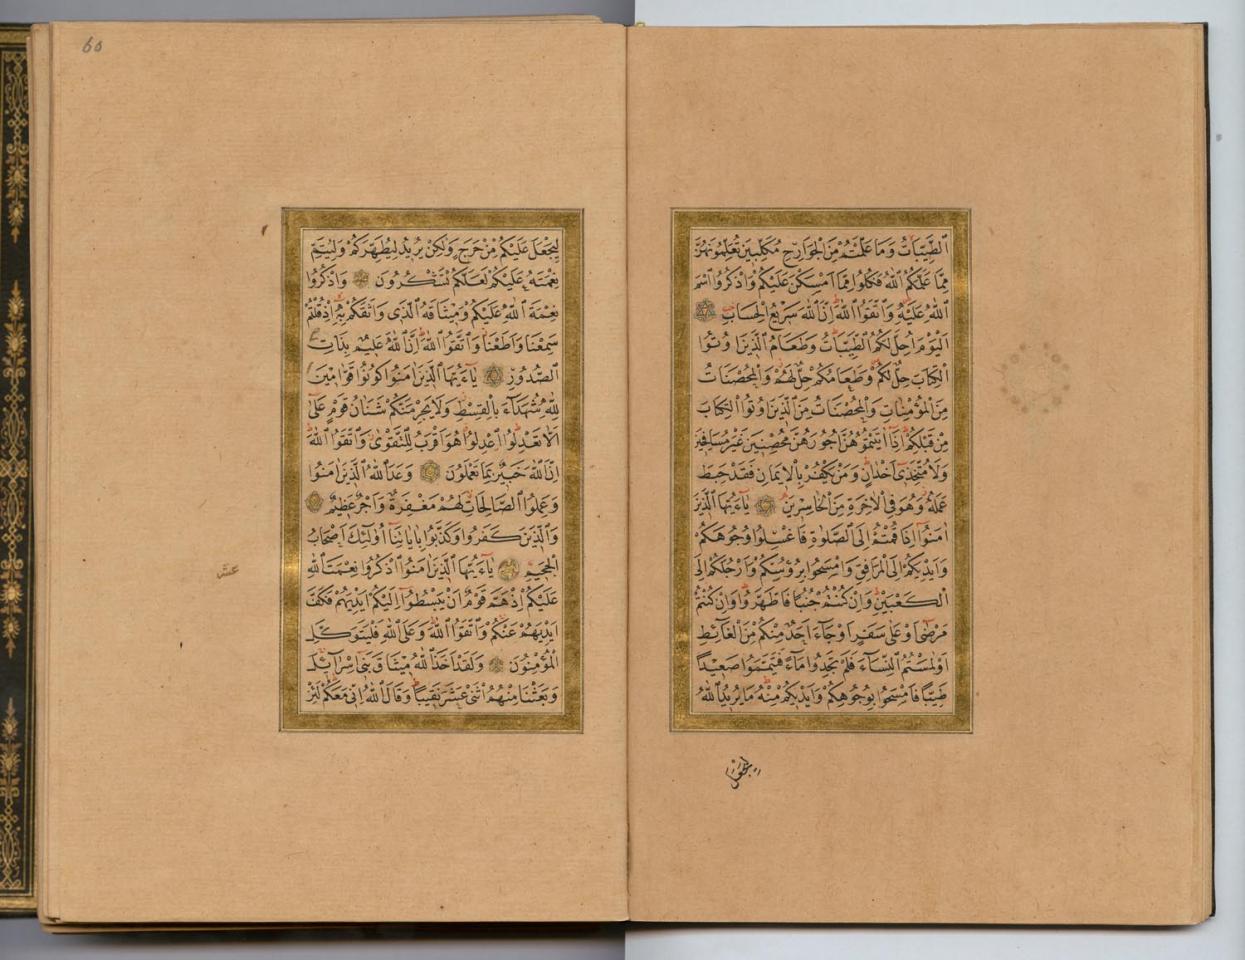 الطَّيِّبَاتُ وَمَا عَلَّمْتُمْ مِنَ الْجَوَارِحِ مُكَلِّبِينَ تُعَلِّمُونَهُنَّ
مِمَّا عَلَّمَكُمُ اللّٰهُ فَكُلُوا مِمَّا اَمْسَكْنَ عَلَيْكُمْ وَاذْكُرُوا اسْمَ
اللّٰهِ عَلَيْهِ وَاتَّقُوا اللّٰهَ اِنَّ اللّٰهَ سَرِيعُ الْحِسَابِ
اَلْيَوْمَ اُحِلَّ لَكُمُ الطَّيِّبَاتُ وَطَعَامُ الَّذِينَ اُوتُوا
الْكِتَابَ حِلٌّ لَكُمْ وَطَعَامُكُمْ حِلٌّ لَهُمْ وَالْمُحْصَنَاتُ
مِنَ الْمُؤْمِنَاتِ وَالْمُحْصَنَاتُ مِنَ الَّذِينَ اُوتُوا الْكِتَابَ
مِنْ قَبْلِكُمْ اِذَا اٰتَيْتُمُوهُنَّ اُجُورَهُنَّ مُحْصِنِينَ غَيْرَ مُسَافِحِينَ
وَلَا مُتَّخِذِي اَخْدَانٍ وَمَنْ يَكْفُرْ بِالْاِيمَانِ فَقَدْ حَبِطَ
عَمَلُهُ وَهُوَ فِي الْاٰخِرَةِ مِنَ الْخَاسِرِينَ يَاءَيُّهَا الَّذِينَ
اٰمَنُوا اِذَا قُمْتُمْ اِلَى الصَّلٰوةِ فَاغْسِلُوا وُجُوهَكُمْ
وَاَيْدِيَكُمْ اِلَى الْمَرَافِقِ وَامْسَحُوا بِرُؤُسِكُمْ وَاَرْجُلَكُمْ اِلَى
الْكَعْبَيْنِ وَاِنْ كُنْتُمْ جُنُبًا فَاطَّهَّرُوا وَاِنْ كُنْتُمْ
مَرْضٰى اَوْ عَلٰى سَفَرٍ اَوْ جَاءَ اَحَدٌ مِنْكُمْ مِنَ الْغَائِطِ
اَوْ لٰمَسْتُمُ النِّسَاءَ فَلَمْ تَجِدُوا مَاءً فَتَيَمَّمُوا صَعِيدًا
طَيِّبًا فَامْسَحُوا بِوُجُوهِكُمْ وَاَيْدِيكُمْ مِنْهُ مَا يُرِيدُ اللّٰهُ
ليجعل
60
لِيَجْعَلَ عَلَيْكُمْ مِنْ حَرَجٍ وَلٰكِنْ يُرِيدُ لِيُطَهِّرَكُمْ وَلِيُتِمَّ
نِعْمَتَهُ عَلَيْكُمْ لَعَلَّكُمْ تَشْكُرُونَ وَاذْكُرُوا
نِعْمَةَ اللّٰهِ عَلَيْكُمْ وَمِيثَاقَهُ الَّذِي وَاثَقَكُمْ بِهِ اِذْ قُلْتُمْ
سَمِعْنَا وَاَطَعْنَا وَاتَّقُوا اللّٰهَ اِنَّ اللّٰهَ عَلِيمٌ بِذَاتِ
الصُّدُورِ يَاءَيُّهَا الَّذِينَ اٰمَنُوا كُونُوا قَوَّامِينَ
لِلّٰهِ شُهَدَاءَ بِالْقِسْطِ وَلَا يَجْرِمَنَّكُمْ شَنَاٰنُ قَوْمٍ عَلٰى
اَلَّا تَعْدِلُوا اِعْدِلُوا هُوَ اَقْرَبُ لِلتَّقْوٰى وَاتَّقُوا اللّٰهَ
اِنَّ اللّٰهَ خَبِيرٌ بِمَا تَعْمَلُونَ وَعَدَ اللّٰهُ الَّذِينَ اٰمَنُوا
وَعَمِلُوا الصَّالِحَاتِ لَهُمْ مَغْفِرَةٌ وَاَجْرٌ عَظِيمٌ
وَالَّذِينَ كَفَرُوا وَكَذَّبُوا بِاٰيَاتِنَا اُولٰئِكَ اَصْحَابُ
الْجَحِيمِ يَاءَيُّهَا الَّذِينَ اٰمَنُوا اذْكُرُوا نِعْمَتَ اللّٰهِ
عَلَيْكُمْ اِذْ هَمَّ قَوْمٌ اَنْ يَبْسُطُوا اِلَيْكُمْ اَيْدِيَهُمْ فَكَفَّ
اَيْدِيَهُمْ عَنْكُمْ وَاتَّقُوا اللّٰهَ وَعَلَى اللّٰهِ فَلْيَتَوَكَّلِ
الْمُؤْمِنُونَ وَلَقَدْ اَخَذَ اللّٰهُ مِيثَاقَ بَنِي اِسْرَائِلَ
وَبَعَثْنَا مِنْهُمُ اثْنَيْ عَشَرَ نَقِيبًا وَقَالَ اللّٰهُ اِنِّي مَعَكُمْ لَئِنْ
عشر